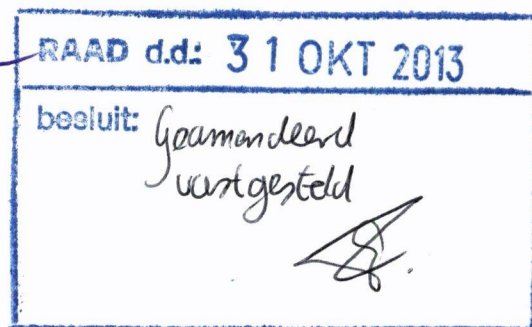 RAAD d.d.: 31 OKT 2013
besluit: Geamendeerd
vastgesteld